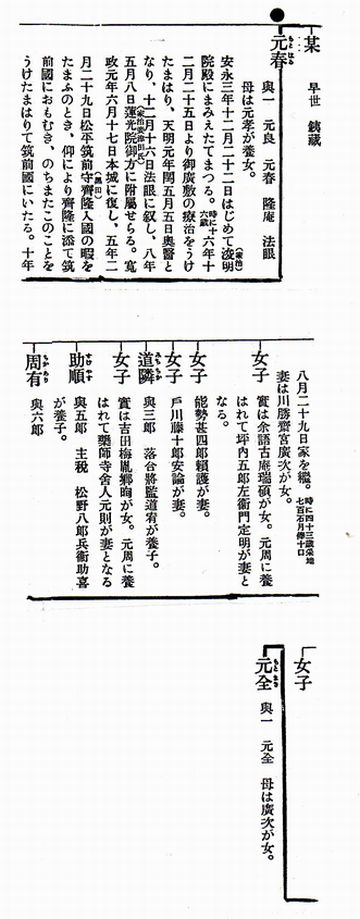 某 早世 銕藏
元春 與一 元良 元春 隆庵 法眼
母は元孝が養女。
安永三年十二月二十二日はじめて浚明
院殿にまみえたてまつる。時に十六歳 六年十
二月二十五日より御廣敷の療治をうけ
たまはり、天明元年閏五月五日奧醫と
なり、十二月十六日法眼に叙し、八年
五月八日蓮光院御方に附屬せらる。寬
政元年六月十七日本城に復し、五年二
月二十九日松平筑前守齊隆入國の暇を
たまふのとき、仰により齊隆に添て筑
前國におもむき、のちまたこのことを
うけたまはりて筑前國にいたる。十年
八月二十九日家を繼。時に四十三歳采地七百石月俸十口
妻は川勝齊宮廣次が女。
女子 實は余語古庵瑞碩が女。元周に養
はれて坪内五郎左衛門定明が妻と
なる。
女子 能勢甚四郎賴護が妻。
女子 戶川藤十郎安論が妻。
道隣 與三郎 落合將監道宥が養子。
女子 實は吉田梅胤郷昫が女。元周に養
はれて藥師寺舍人元則が妻となる
助順 與五郎 主税 松野八郎兵衛助喜
が養子。
周有 與六郎
女子
元全 與一 元全 母は廣次が女。